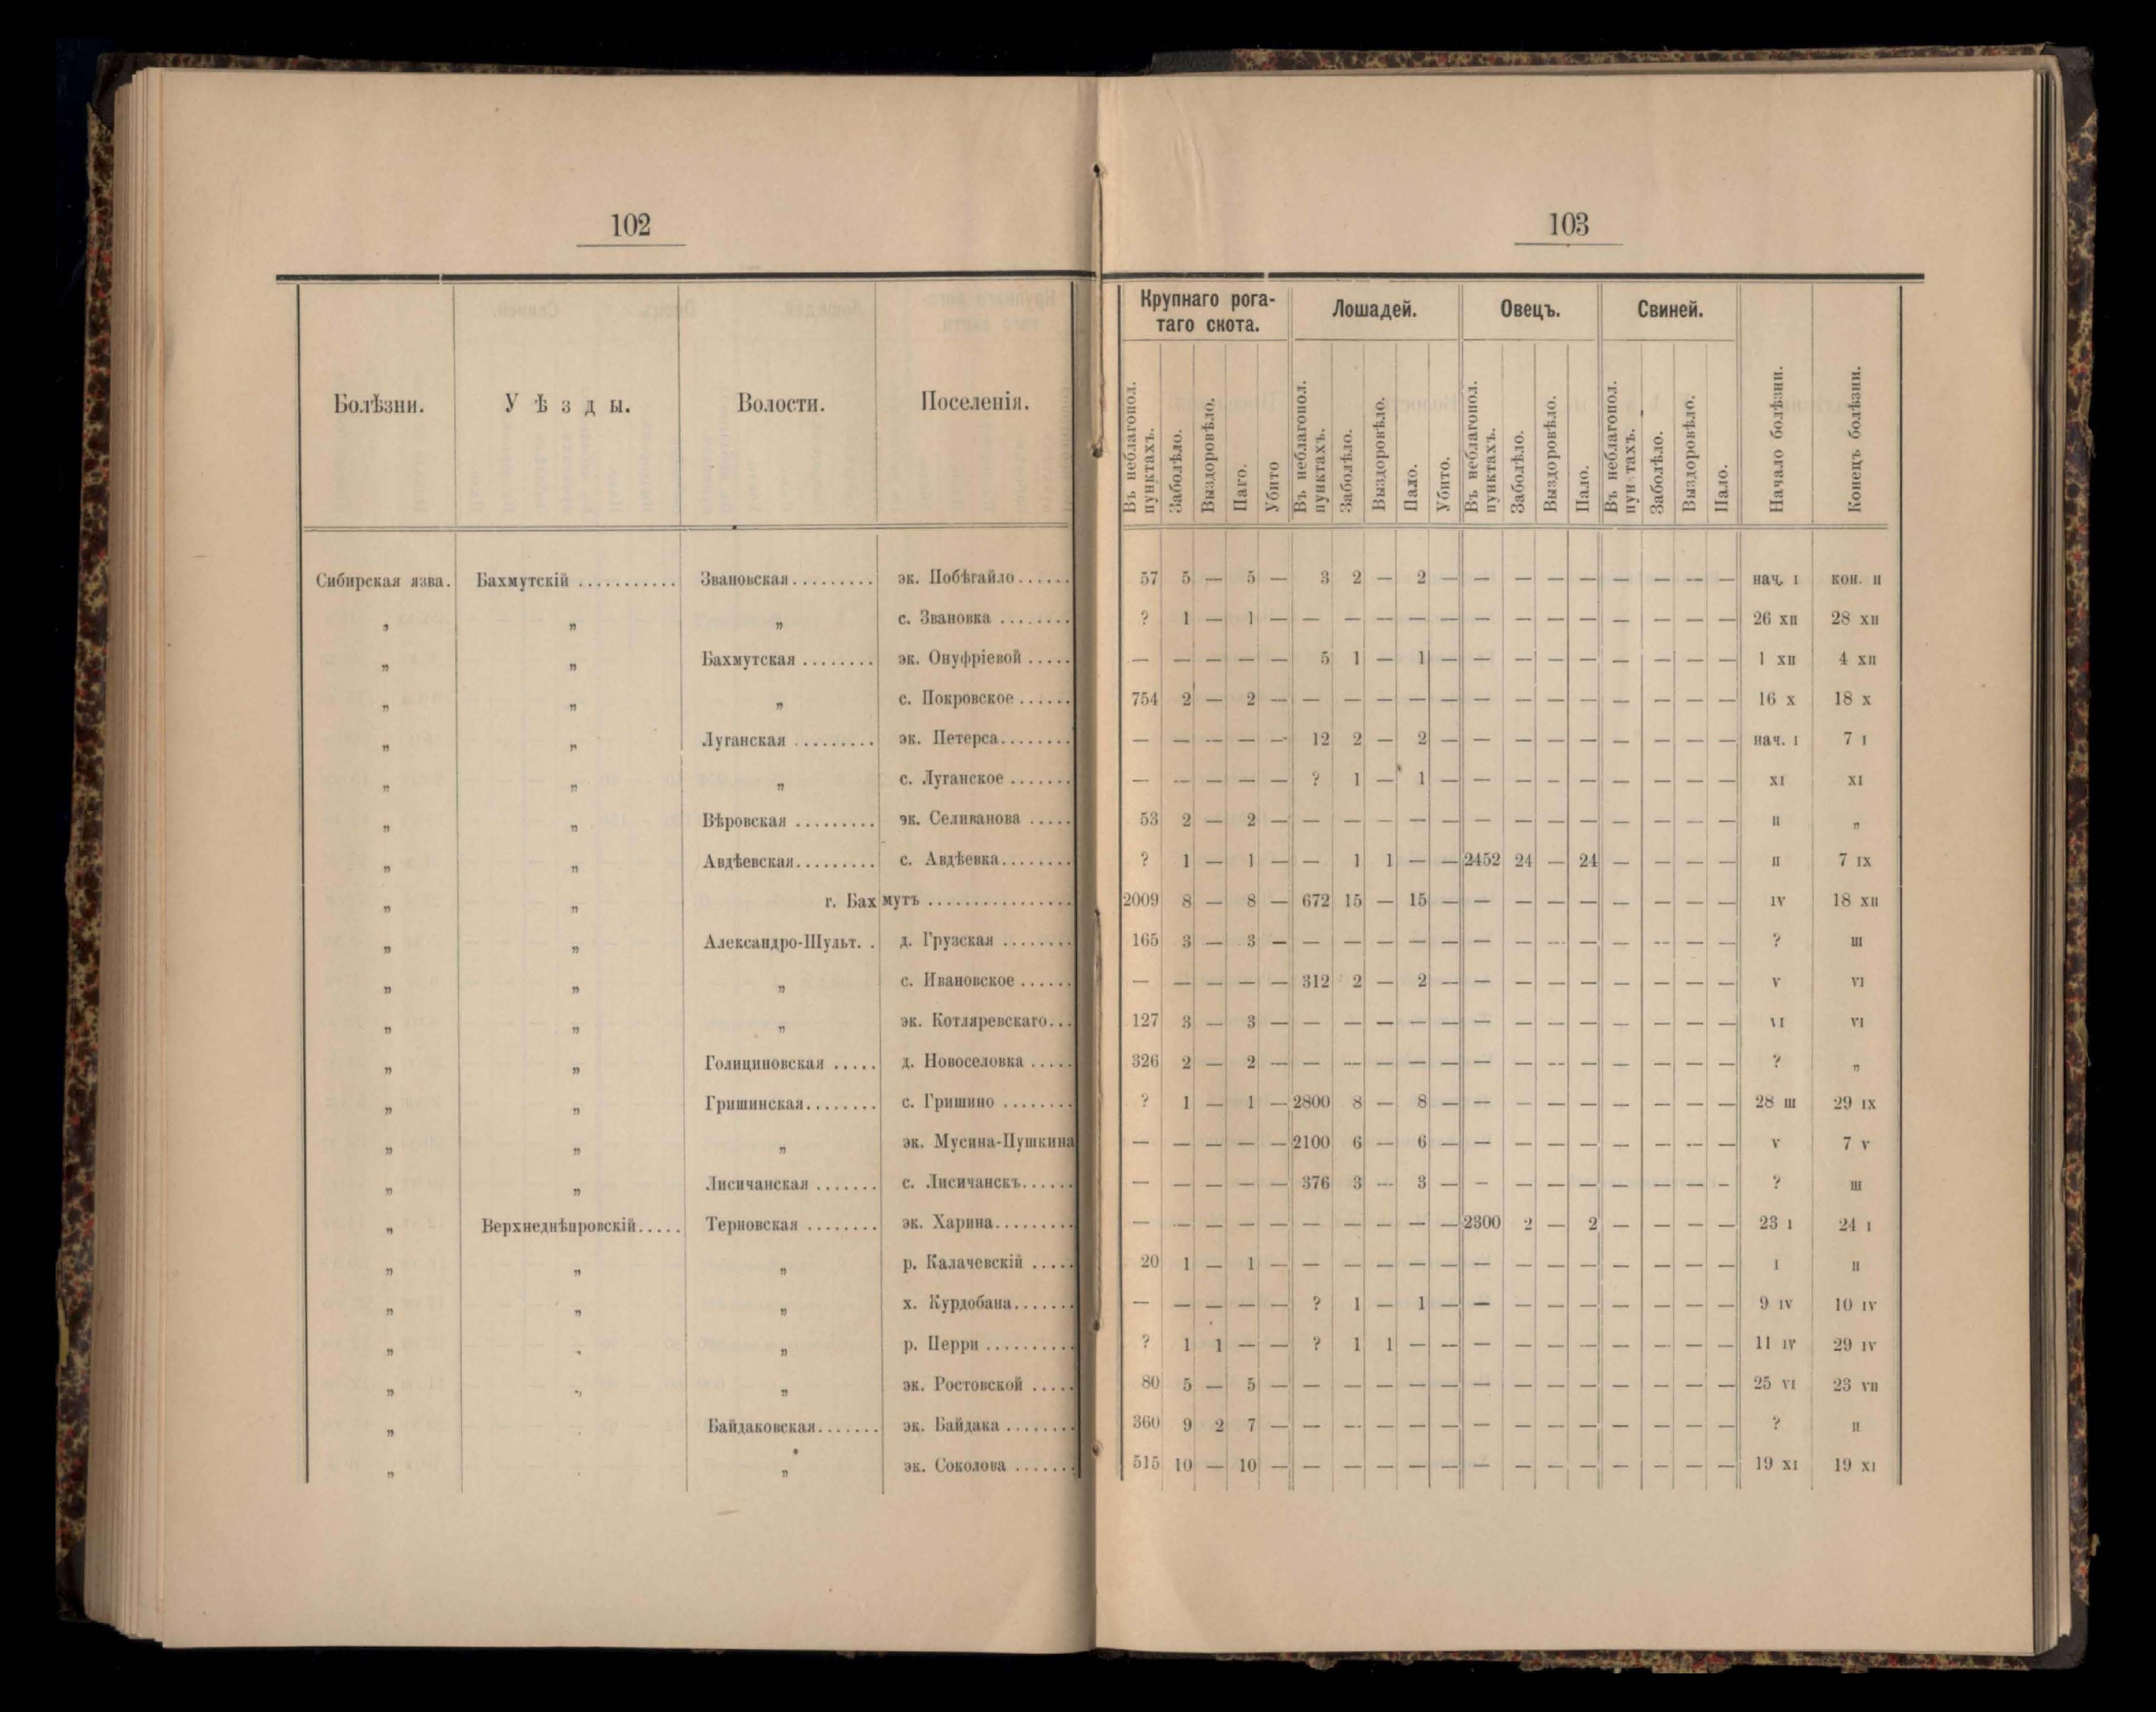 102
Болѣзни. Уѣзды. Волости. Поселенія.
Сибирская язва. Бахмутскій ........... Звановская......... эк. Побѣгайло......
„ „ „ с. Звановка ........
„ „ Бахмутская ........ эк. Онуфріевой .....
„ „ „ с. Покровское ......
„ „ Луганская ......... эк. Петерса........
„ „ „ с. Луганское .......
„ „ Вѣровская ......... эк. Селиванова .....
„ „ Авдѣевская......... с. Авдѣевка........
„ „ г. Бахмутъ ...............
„ „ Александро-Шульт. . д. Грузская ........
„ „ „ с. Ивановское ......
„ „ „ эк. Котляревскаго...
„ „ Голициновская ..... д. Новоселовка .....
„ „ Гришинская........ с. Гришино ........
„ „ „ эк. Мусина-Пушкина
„ „ Лисичанская ....... с. Лисичанскъ......
„ Верхнеднѣпровскій..... Терновская ........ эк. Харина.........
„ „ „ р. Калачевскій .....
„ „ „ х. Курдобана.......
„ „ „ р. Перри ..........
„ „ „ эк. Ростовской .....
„ Байдаковская....... эк. Байдака ........
„ „ эк. Соколова .......
103
Крупнаго рога-
таго скота. Лошадей. Овецъ. Свиней.
Въ неблагопол. пунктахъ. Заболѣло. Выздоровѣло. Паго. Убито Въ неблагопол. пунктахъ. Заболѣло. Выздоровѣло. Пало. Убито. Въ неблагопол. пунктахъ. Заболѣло. Выздоровѣло. Пало. Въ неблагопол. пун тахъ. Заболѣло. Выздоровѣло. Пало. Начало болѣзни. Конецъ болѣзни.
57 5 — 5 — 3 2 — 2 — — — — — — — — — нач. I кон. II
? 1 — 1 — — — — — — — — — — — — — — 26 XII 28 XII
— — — — — 5 1 — 1 — — — — — — — — — 1 XII 4 XII
754 2 — 2 — — — — — — — — — — — — — — 16 X 18 X
— — — — — 12 2 — 2 — — — — — — — — — нач. I 7 I
— — — — — ? 1 — 1 — — — — — — — — — XI XI
53 2 — 2 — — — — — — — — — — — — — — II „
? 1 — 1 — — 1 1 — — 2452 24 — 24 — — — — II 7 IX
2009 8 — 8 — 672 15 — 15 — — — — — — — — — IV 18 XII
165 3 — 3 — — — — — — — — — — — — — — ? III
— — — — — 312 2 — 2 — — — — — — — — — V VI
127 3 — 3 — — — — — — — — — — — — — — VI VI
326 2 — 2 — — — — — — — — — — — — — — ? „
? 1 — 1 — 2800 8 — 8 — — — — — — — — — 28 III 29 IX
— — — — — 2100 6 — 6 — — — — — — — — — V 7 V
— — — — — 376 3 — 3 — — — — — — — — — ? III
— — — — — — — — — — 2300 2 — 2 — — — — 23 I 24 I
20 1 — 1 — — — — — — — — — — — — — — I II
— — — — — ? 1 — 1 — — — — — — — — — 9 IV 10 IV
? 1 1 — — ? 1 1 — — — — — — — — — — 11 IV 29 IV
80 5 — 5 — — — — — — — — — — — — — — 25 VI 23 VII
360 9 2 7 — — — — — — — — — — — — — — ? II
515 10 — 10 — — — — — — — — — — — — — — 19 XI 19 XI